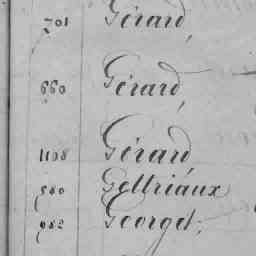 701 Gérard,
660 Gérard,
1108 Gérard,
980 Geltriaux
982 Georget,